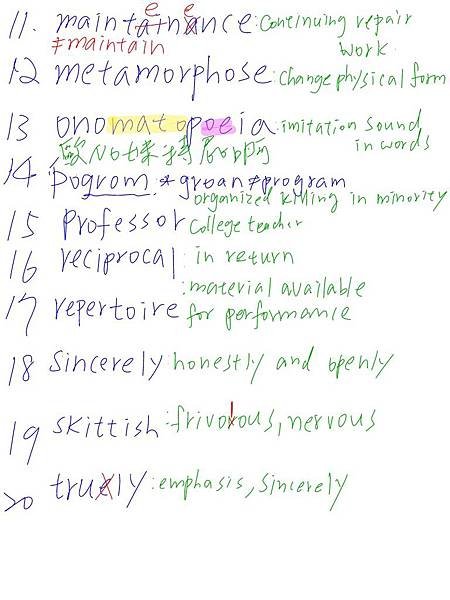 e e
11. maintainance: Continuing repair
≠maintain work.
12 metamorphose: Change physical form
13 onomatopoeia: imitation sound
in words
歐No
14 pogrom *groan≠program
organized killing in minority
15 Professor College teacher
16 reciprocal: in return
:material available
17 repertoire for performance
18 Sincerely honestly and openly
19 skittish: frivolous, nervous
20 truely: emphasis, Sincerely